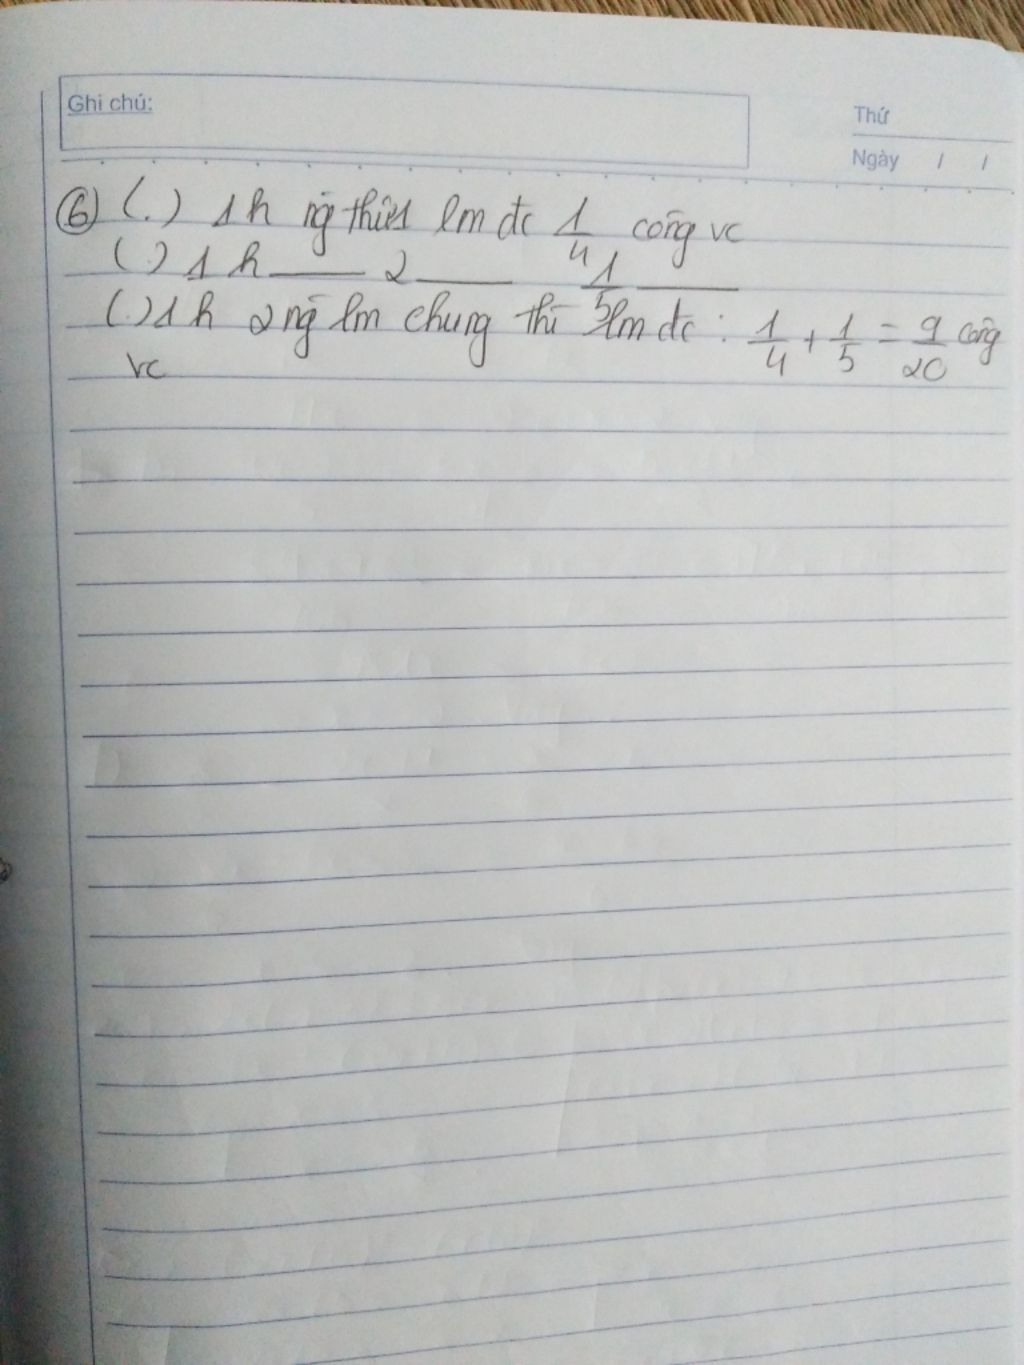 Ghi chú:
Thứ
Ngày / /
⑥ (.) 1h ng thứ 1 lm đc 1/4 công vc
(.) 1h ___ 2 ___ 1/5 ___
(.) 1h 2 ng lm chung thì lm đc : 1/4 + 1/5 = 9/20 công
vc